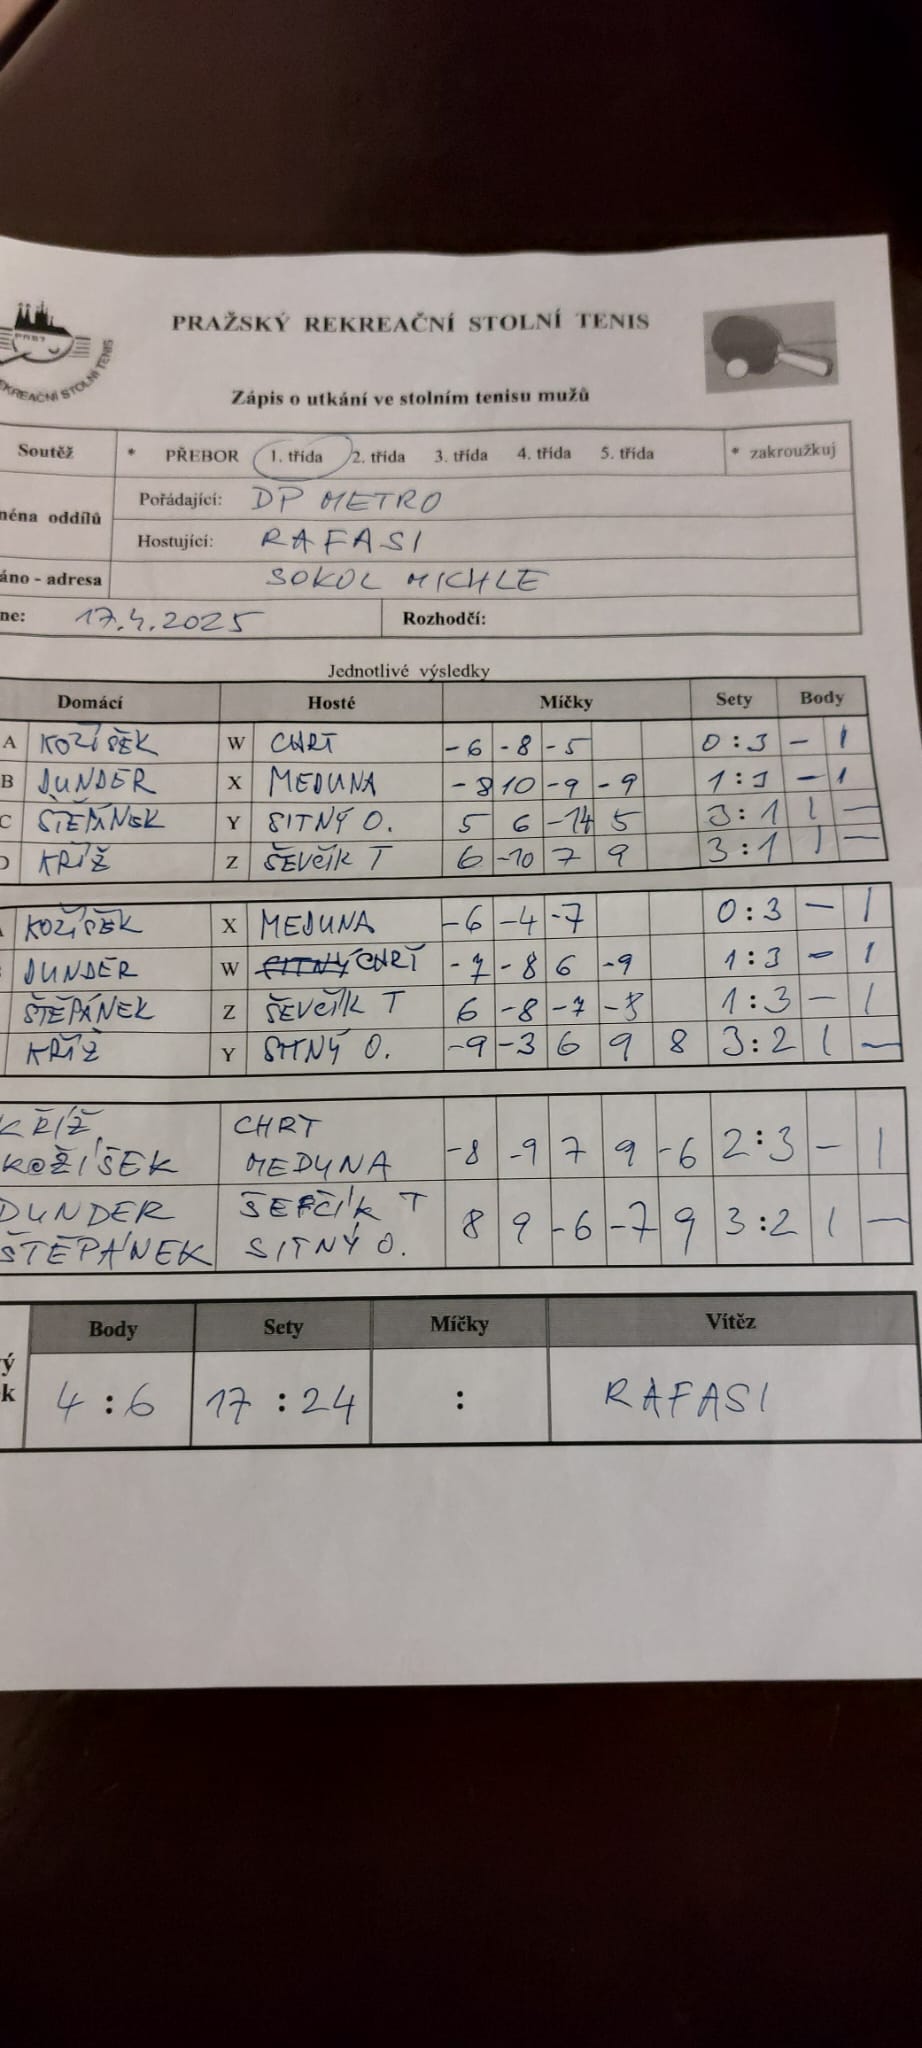 PRAŽSKÝ REKREAČNÍ STOLNÍ TENIS
EKREAČNÍ STOLNÍ TENIS
Zápis o utkání ve stolním tenisu mužů
Soutěž * PŘEBOR 1. třída 2. třída 3. třída 4. třída 5. třída * zakroužkuj
ména oddílů Pořádající: DP METRO
Hostující: RAFASI
áno - adresa SOKOL MICHLE
ne: 17.4.2025 Rozhodčí:
Jednotlivé výsledky
Domácí Hosté Míčky Sety Body
A KOŽÍŠEK W CHRT -6 -8 -5 0:3 - 1
B DUNDER X MEDUNA -8 10 -9 -9 1:3 - 1
C ŠTĚPÁNEK Y SITNÝ O. 5 6 -14 5 3:1 1 -
KŘÍŽ Z ŠEVČÍK T 6 -10 7 9 3:1 1 -
KOŽÍŠEK X MEDUNA -6 -4 -7 0:3 - 1
DUNDER W CHRT -7 -8 6 -9 1:3 - 1
ŠTĚPÁNEK Z ŠEVČÍK T 6 -8 -7 -8 1:3 - 1
KŘÍŽ Y SITNÝ O. -9 -3 6 9 8 3:2 1 -
KŘÍŽ CHRT
KOŽÍŠEK MEDUNA -8 -9 7 9 -6 2:3 - 1
DUNDER ŠEFČÍK T
ŠTĚPÁNEK SITNÝ O. 8 9 -6 -7 9 3:2 1 -
Body Sety Míčky Vítěz
ý
k 4:6 17:24 : RAFASI